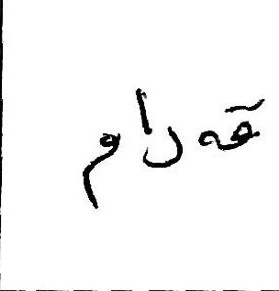 قەدام